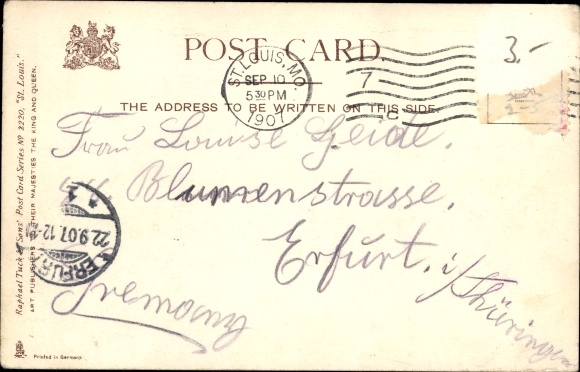 POST CARD.
3.-
ST. LOUIS, MO.
SEP 10
5 30 PM
1907
7
C
THE ADDRESS TO BE WRITTEN ON THIS SIDE.
Frau Louise Geide.
Blumenstrasse.
Erfurt. i/Thüringen
Gremany
ERFURT
22.9.07.12-
* 1
Raphael Tuck & Sons' Post Card Series No 2220, "St. Louis."
ART PUBLISHERS TO THEIR MAJESTIES THE KING AND QUEEN.
Printed in Germany